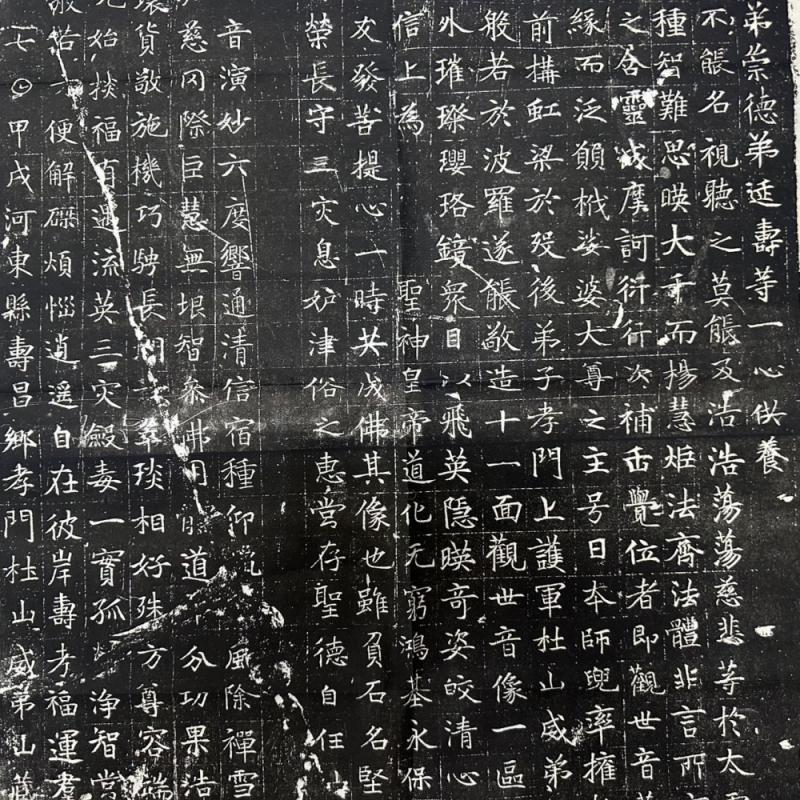 弟崇德弟延壽等一心供養
不能名視聽之莫能及浩浩蕩蕩慈悲等於太
種智難思暎大千而揚慧炬法齊法體非言所
之含靈咸摩訶衍行次補缶覺位者即觀世音
緣而泛願栰娑婆大尊之主号曰本師兜率擁
前搆虹梁於歿後弟子孝門上護軍杜山威弟
般若於波羅遂能敬造十一面觀世音像一區
外璀璨瓔珞鏡衆目以飛英隱暎奇姿皎清心
信上為 聖神皇帝道化无窮鴻基永保
友發菩提心一時共成佛其像也雖頁石名堅
榮長守三灾息妒津俗之惠甞存聖德自任
音演妙六度響通清信宿種仰 風除禪雪
慈冈際巨慧無垠智叅佛用 道 分功果浩
貨敬施機巧騁長開 琰相好殊方尊容端
始掞福有遇流英三灾鷇毒一實孤 淨智甞
若 便解磔煩惱逍遥自在彼岸壽考福運羣
七〇甲戌河東縣壽昌鄉孝門杜山威弟山